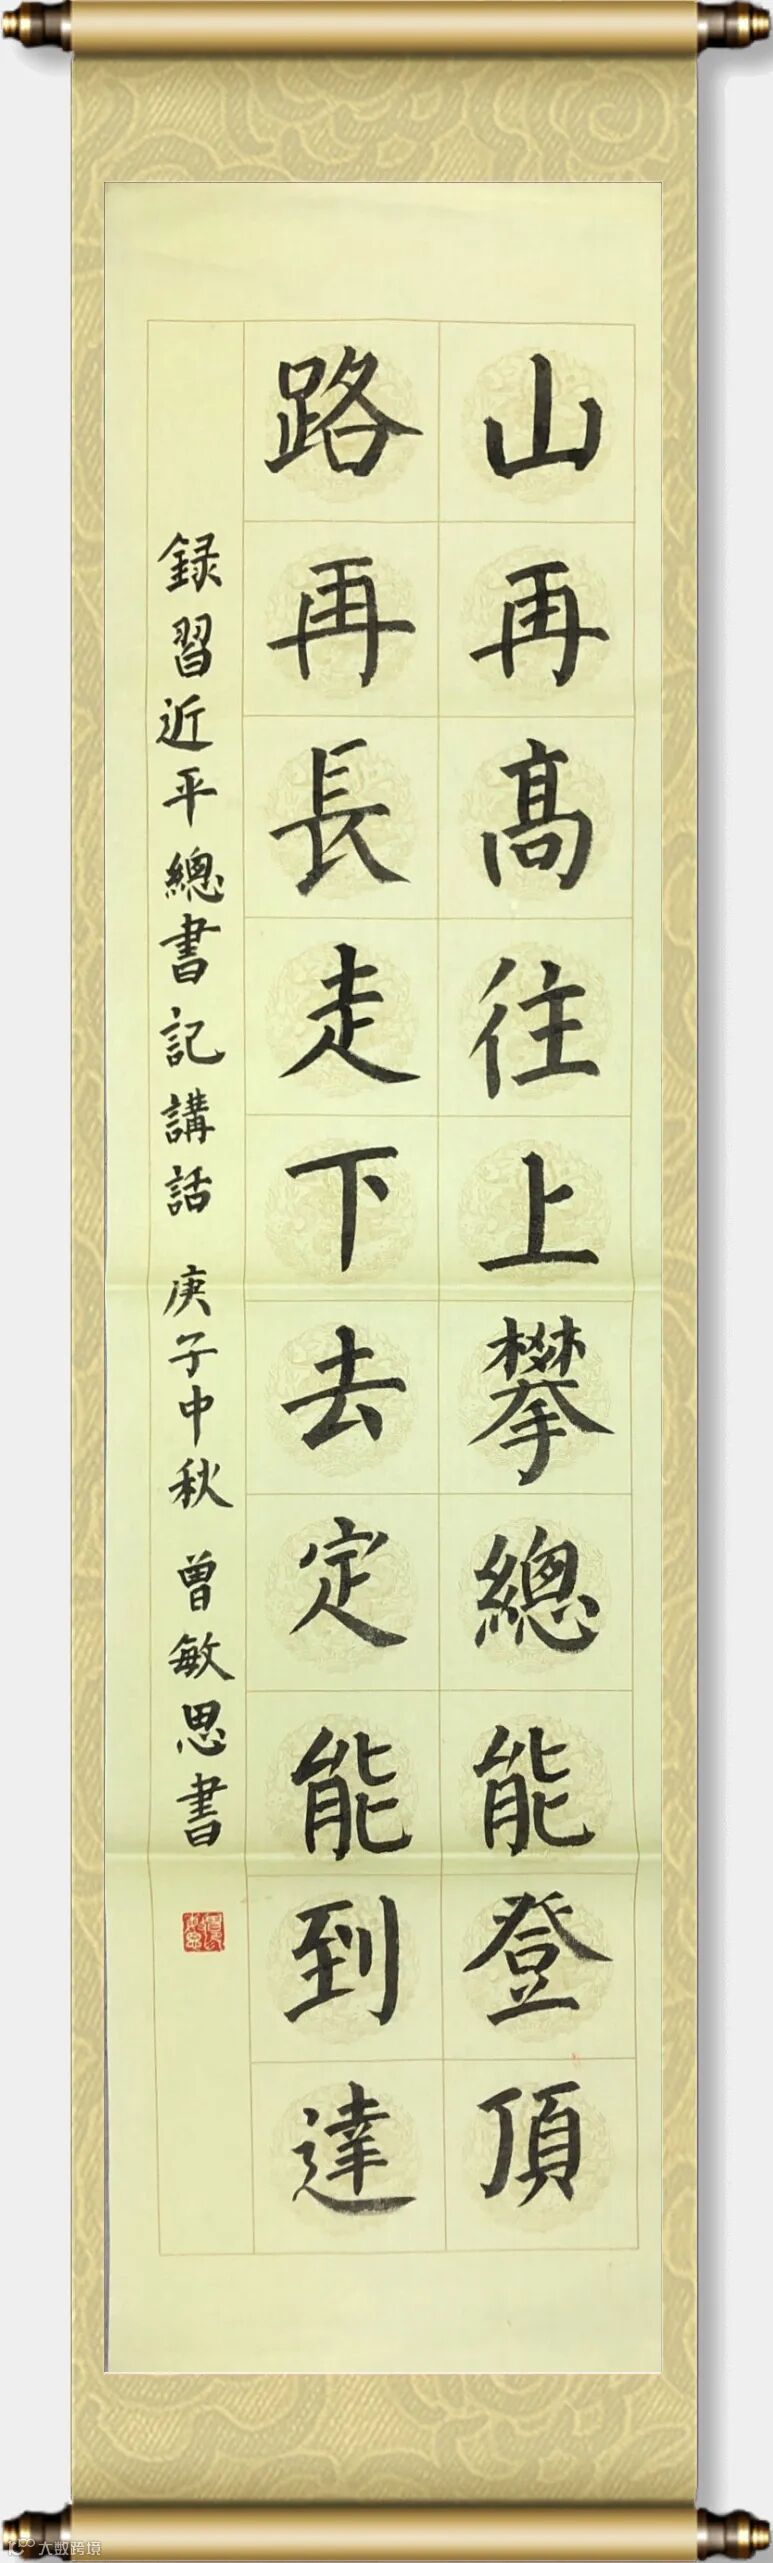 山再高往上攀總能登頂
路再長走下去定能到達
録習近平總書記講話 庚子中秋 曾敏思書
大数跨境